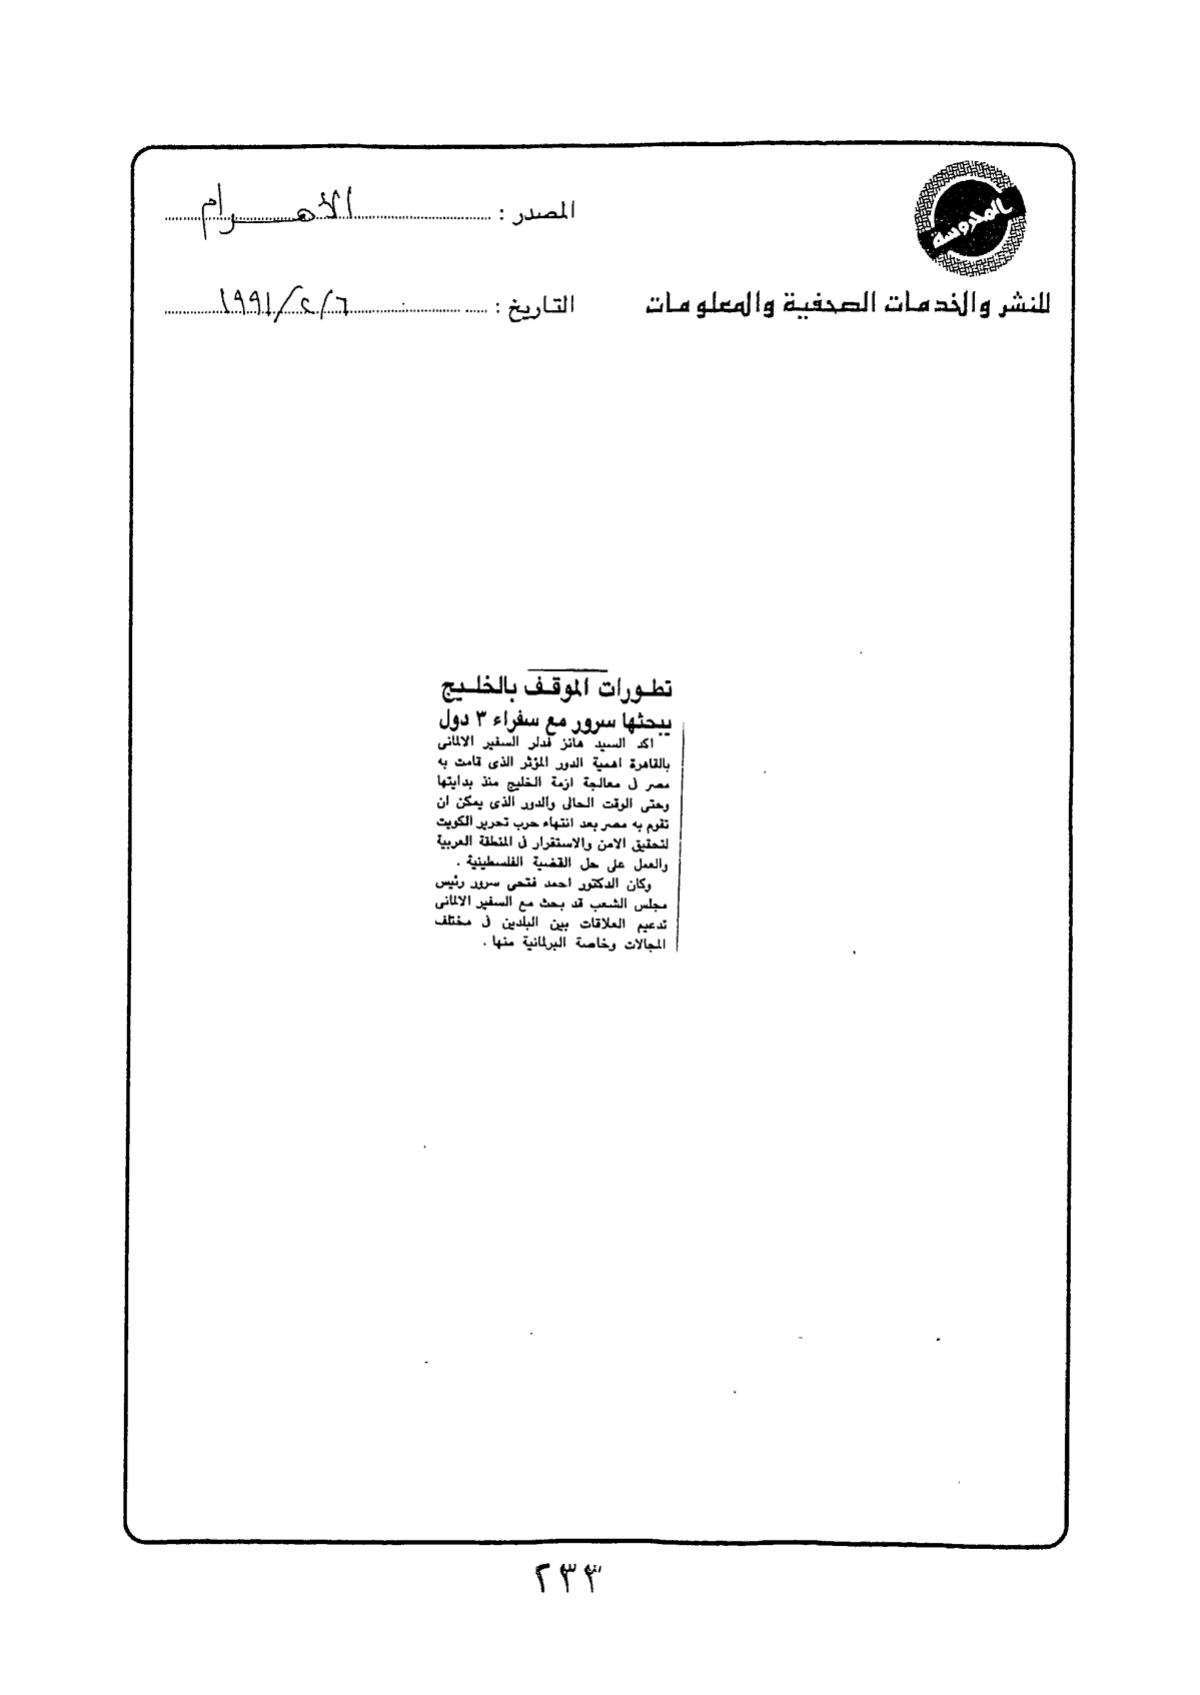 المحروسة
للنشر والخدمات الصحفية والمعلومات
المصدر : الأهرام
التاريخ : ٦/٢/١٩٩١
تطورات الموقف بالخليج
يبحثها سرور مع سفراء ٣ دول
اكد السيد هانز فدلر السفير الالمانى
بالقاهرة اهمية الدور المؤثر الذى قامت به
مصر فى معالجة ازمة الخليج منذ بدايتها
وحتى الوقت الحالى والدور الذى يمكن ان
تقوم به مصر بعد انتهاء حرب تحرير الكويت
لتحقيق الامن والاستقرار فى المنطقة العربية
والعمل على حل القضية الفلسطينية .
وكان الدكتور احمد فتحى سرور رئيس
مجلس الشعب قد بحث مع السفير الالمانى
تدعيم العلاقات بين البلدين فى مختلف
المجالات وخاصة البرلمانية منها .
٢٣٣